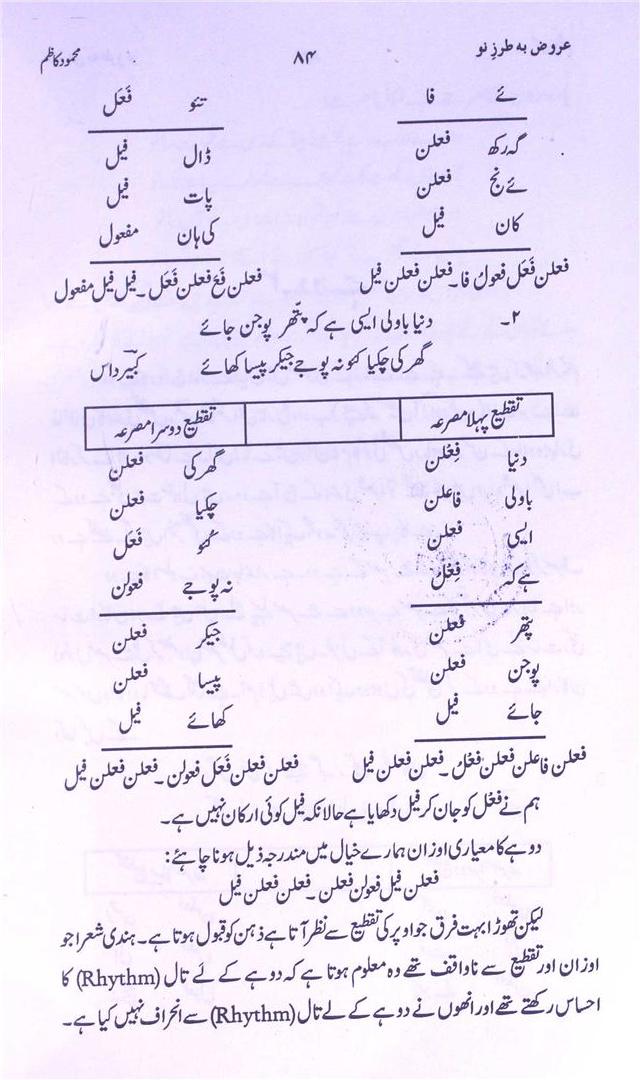 عروض بہ طرزِ نو ۸۴ محمود کاظم
ئے فا تئو فَعَل
گہ رکھ فعلن ڈال فیل
ئے نچ فعلن پات فیل
کان فیل کی ہان مفعول
فعلن فَعَل فعولُ فا۔ فعلن فعلن فیل فعلن فَعْ فعلن فَعَل۔ فیل فیل مفعول
۲۔ دنیا باولی ایسی ہے کہ پتھر پوجن جائے
گھر کی چکیا کہو نہ پوجے جیکر پیسا کھائے کبیر داس
تقطیع پہلا مصرعہ تقطیع دوسرا مصرعہ
دنیا فِعْلن گھر کی فعلن
باولی فاعلن چکیا فعلن
ایسی فعلن کہو فَعَل
ہے کہ فِعْلُ نہ پوجے فعولن
پتھر فعلن جیکر فعلن
پوجن فعلن پیسا فعلن
جائے فیل کھائے فیل
فعلن فاعلن فعلن فعْلُ۔ فعلن فعلن فیل فعلن فعلن فَعَل فعولن۔ فعلن فعلن فیل
ہم نے فِعْل کو جان کر فیل دکھایا ہے حالانکہ فیل کوئی ارکان نہیں ہے۔
دوہے کا معیاری اوزان ہمارے خیال میں مندرجہ ذیل ہونا چاہئے:
فعلن فیل فعولن فعلن۔ فعلن فعلن فیل
لیکن تھوڑا بہت فرق جو اوپر کی تقطیع سے نظر آتا ہے ذہن کو قبول ہوتا ہے۔ ہندی شعرا جو
اوزان اور تقطیع سے ناواقف تھے وہ معلوم ہوتا ہے کہ دوہے کے لے تال (Rhythm) کا
احساس رکھتے تھے اور انھوں نے دوہے کے لے تال (Rhythm) سے انحراف نہیں کیا ہے۔